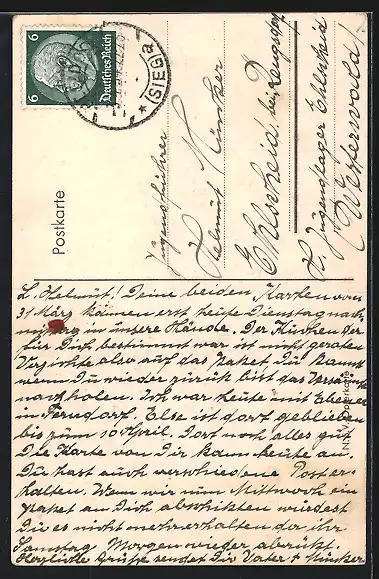 6
6
Deutsches Reich
(SIEG) a
Postkarte
Jugendführer
Helmut Münker
Ehlscheid bei Rengsdorf
H. Jugendlager Ehlscheid
(Westerwald)
L. Helmut! Deine beiden Karten vom
31 März kamen erst heute Dienstagnach-
mittag in unsere Hände. Der Kuchen der
für Dich bestimmt war ist nicht geraten
Verzichte also auf das Paket Du kannst
wenn Du wieder zurück bist das Versäumte
nachholen. Ich war heute mit Ebener
in Ferndorf. Else ist dort geblieben
bis zum 10 April. Dort noch alles gut
Die Karte von Dir kam heute an.
Du hast auch verschiedene Post er-
halten. Wenn wir nun Mittwoch ein
Paket an Dich abschikten wuerdest
Du es nicht mehr erhalten da ihr
Samstag Morgen wieder abrückt.
Herzliche Grüße sendet Dir Vater + Münker